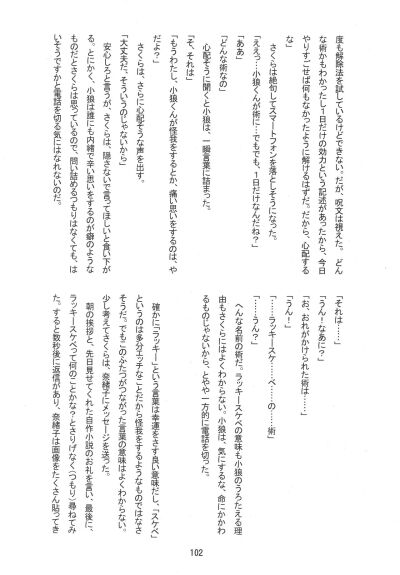 度も解除法を試しているけどできない。だが、呪文は視えた。どん
な術かもわかったし1日だけの効力という記述があったから、今日
やりすごせば何もなかったように解けるはずだ。だから、心配する
な」
　さくらは絶句してスマートフォンを落としそうになった。
「ええっ…小狼くんが術に…でもでも、1日だけなんだね？」
「ああ」
「どんな術なの」
　心配そうに聞くと小狼は、一瞬言葉に詰まった。
「そ、それは」
「もうわたし、小狼くんが怪我をするとか、痛い思いをするのは、や
だよ？」
　さくらは、さらに心配そうな声を出す。
「大丈夫だ。そういうのじゃないから」
　安心しろと言うが、さくらは、隠さないで言ってほしいと食い下が
る。とにかく、小狼は誰にも内緒で辛い思いをするのが癖のような
ものだとさくらは思っているので、問い詰めるつもりはなくても、は
いそうですかと電話を切る気にはなれないのだ。
「それは……」
「うん！なあに？」
「お、おれがかけられた術は……」
「うん！」
「……ラッキースケ……ベ……の……術」
「……うん？」
　へんな名前の術だ。ラッキースケベの意味も小狼のうろたえる理
由もさくらにはよくわからない。小狼は、気にするな、命にかかわ
るものじゃないから、とやや一方的に電話を切った。
　確かに「ラッキー」という言葉は幸運をさす良い意味だし、「スケベ」
というのは多分エッチなことだから怪我をするようなものではなさ
そうだ。でもこのふたつがつながった言葉の意味はよくわからない。
少し考えてさくらは、奈緒子にメッセージを送った。
　朝の挨拶と、先日見せてくれた自作小説のお礼を言い、最後に、
ラッキースケベって何のことかな？とさりげなく（つもり）尋ねてみ
た。すると数秒後に返信があり、奈緒子は画像をたくさん貼ってき
102